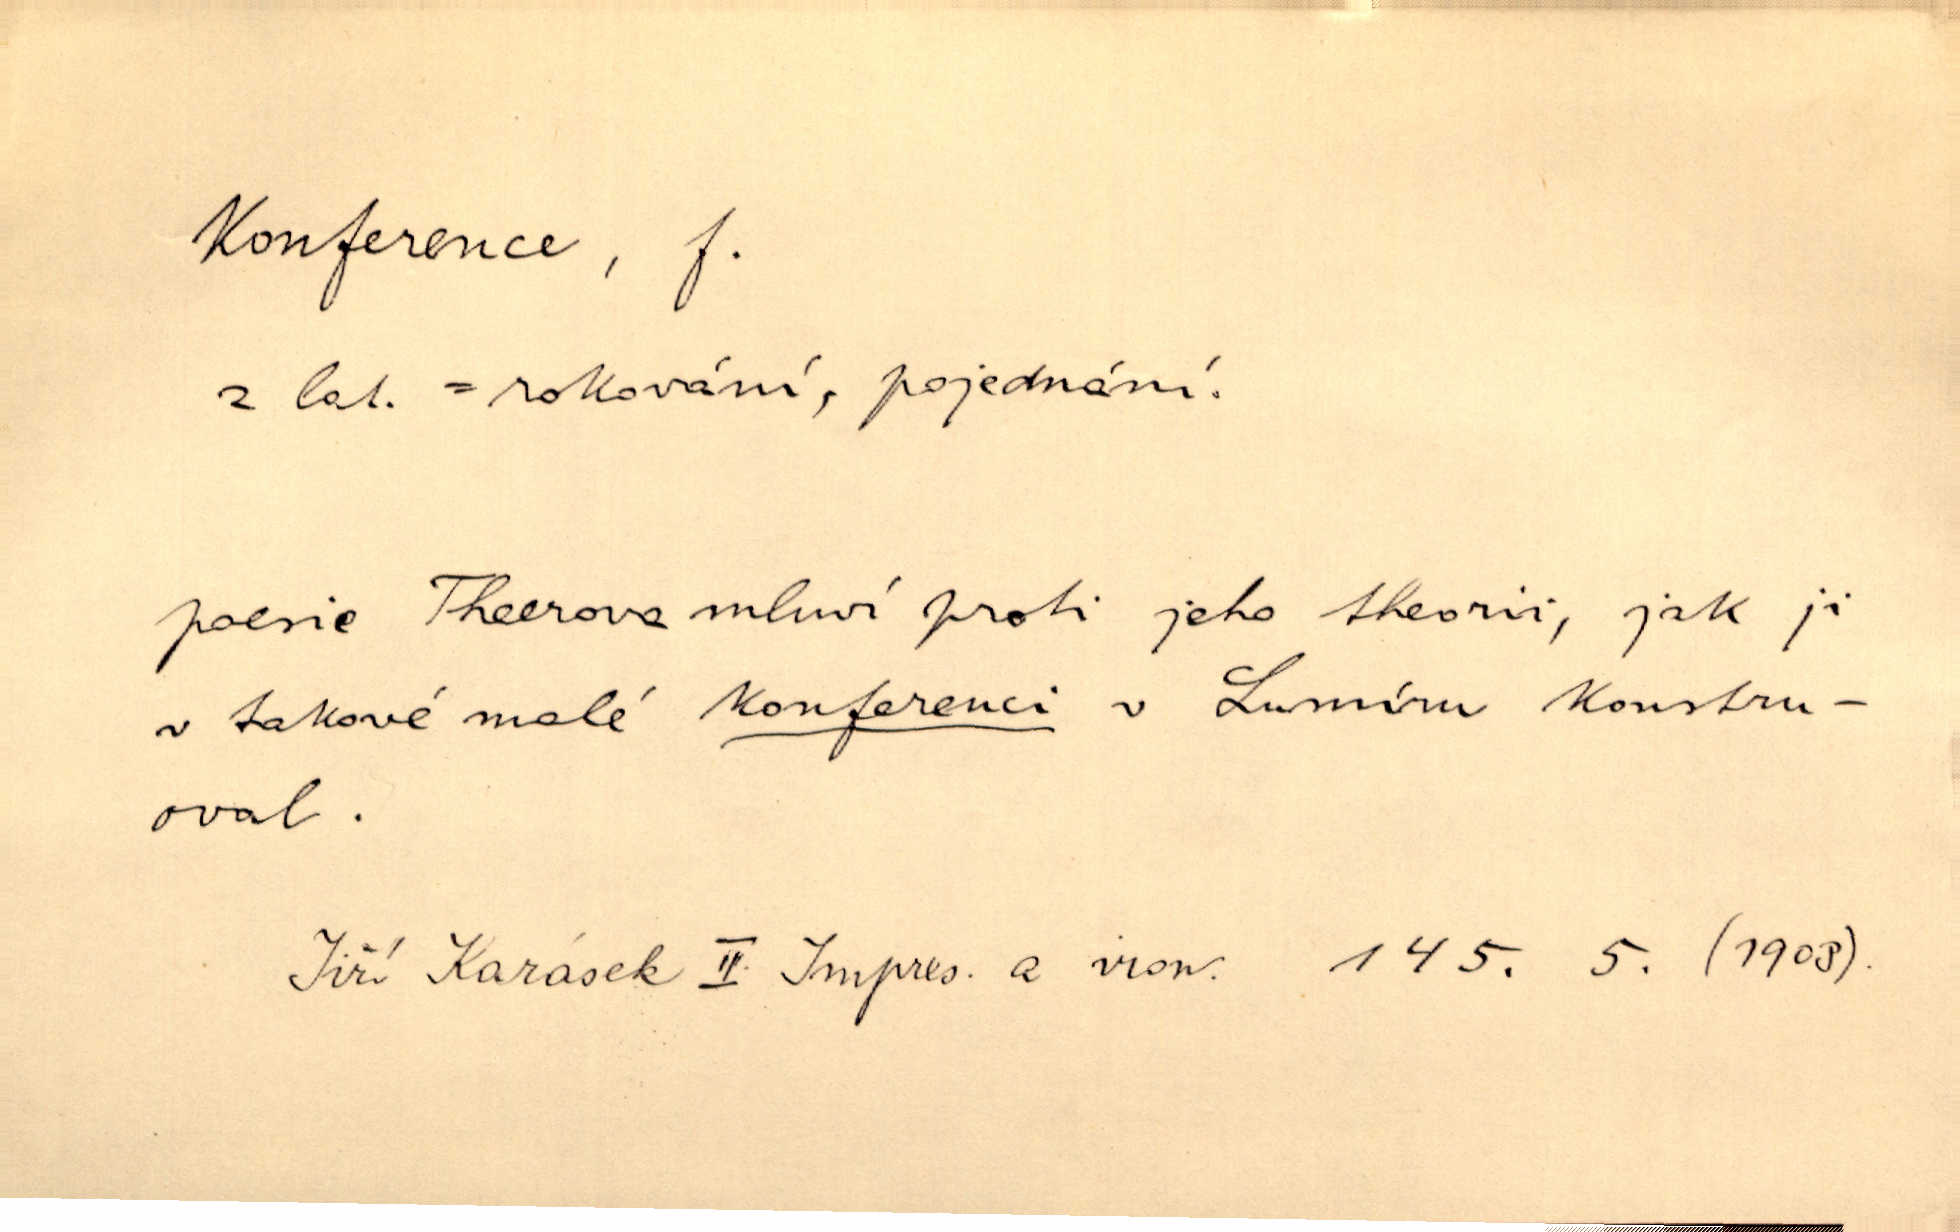 Konference, f.
z lat. = rokování, pojednání.
poesie Theerova mluví proti jeho theorii, jak ji
v takové malé konferenci v Lumíru konstru-
oval.
Jiří Karásek II. Impres. a iron. 145. 5. (1903).